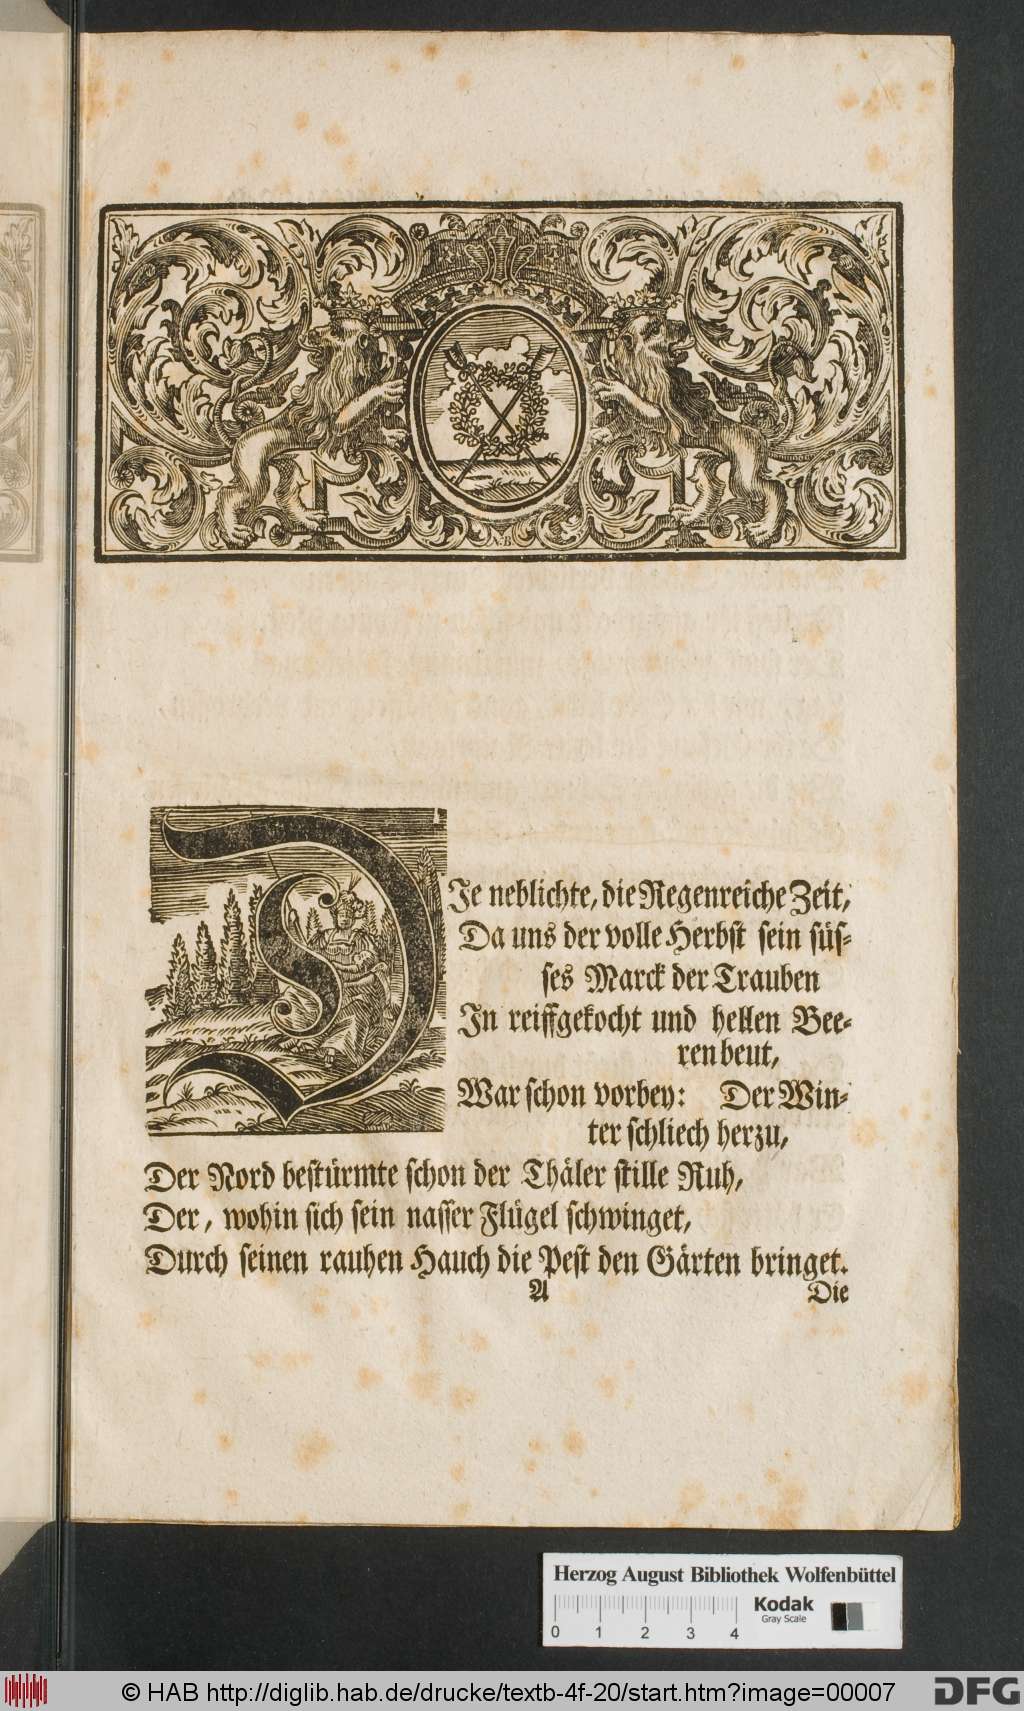 DJe neblichte, die Regenreiche Zeit,
Da uns der volle Herbst sein süs-
ses Marck der Trauben
Jn reiffgekocht und hellen Bee-
ren beut,
War schon vorbey: Der Win-
ter schliech herzu,
Der Nord bestürmte schon der Thäler stille Ruh,
Der, wohin sich sein nasser Flügel schwinget,
Durch seinen rauhen Hauch die Pest den Gärten bringet.
A Die
Herzog August Bibliothek Wolfenbüttel
Kodak
Gray Scale
0 1 2 3 4
© HAB http://diglib.hab.de/drucke/textb-4f-20/start.htm?image=00007
DFG